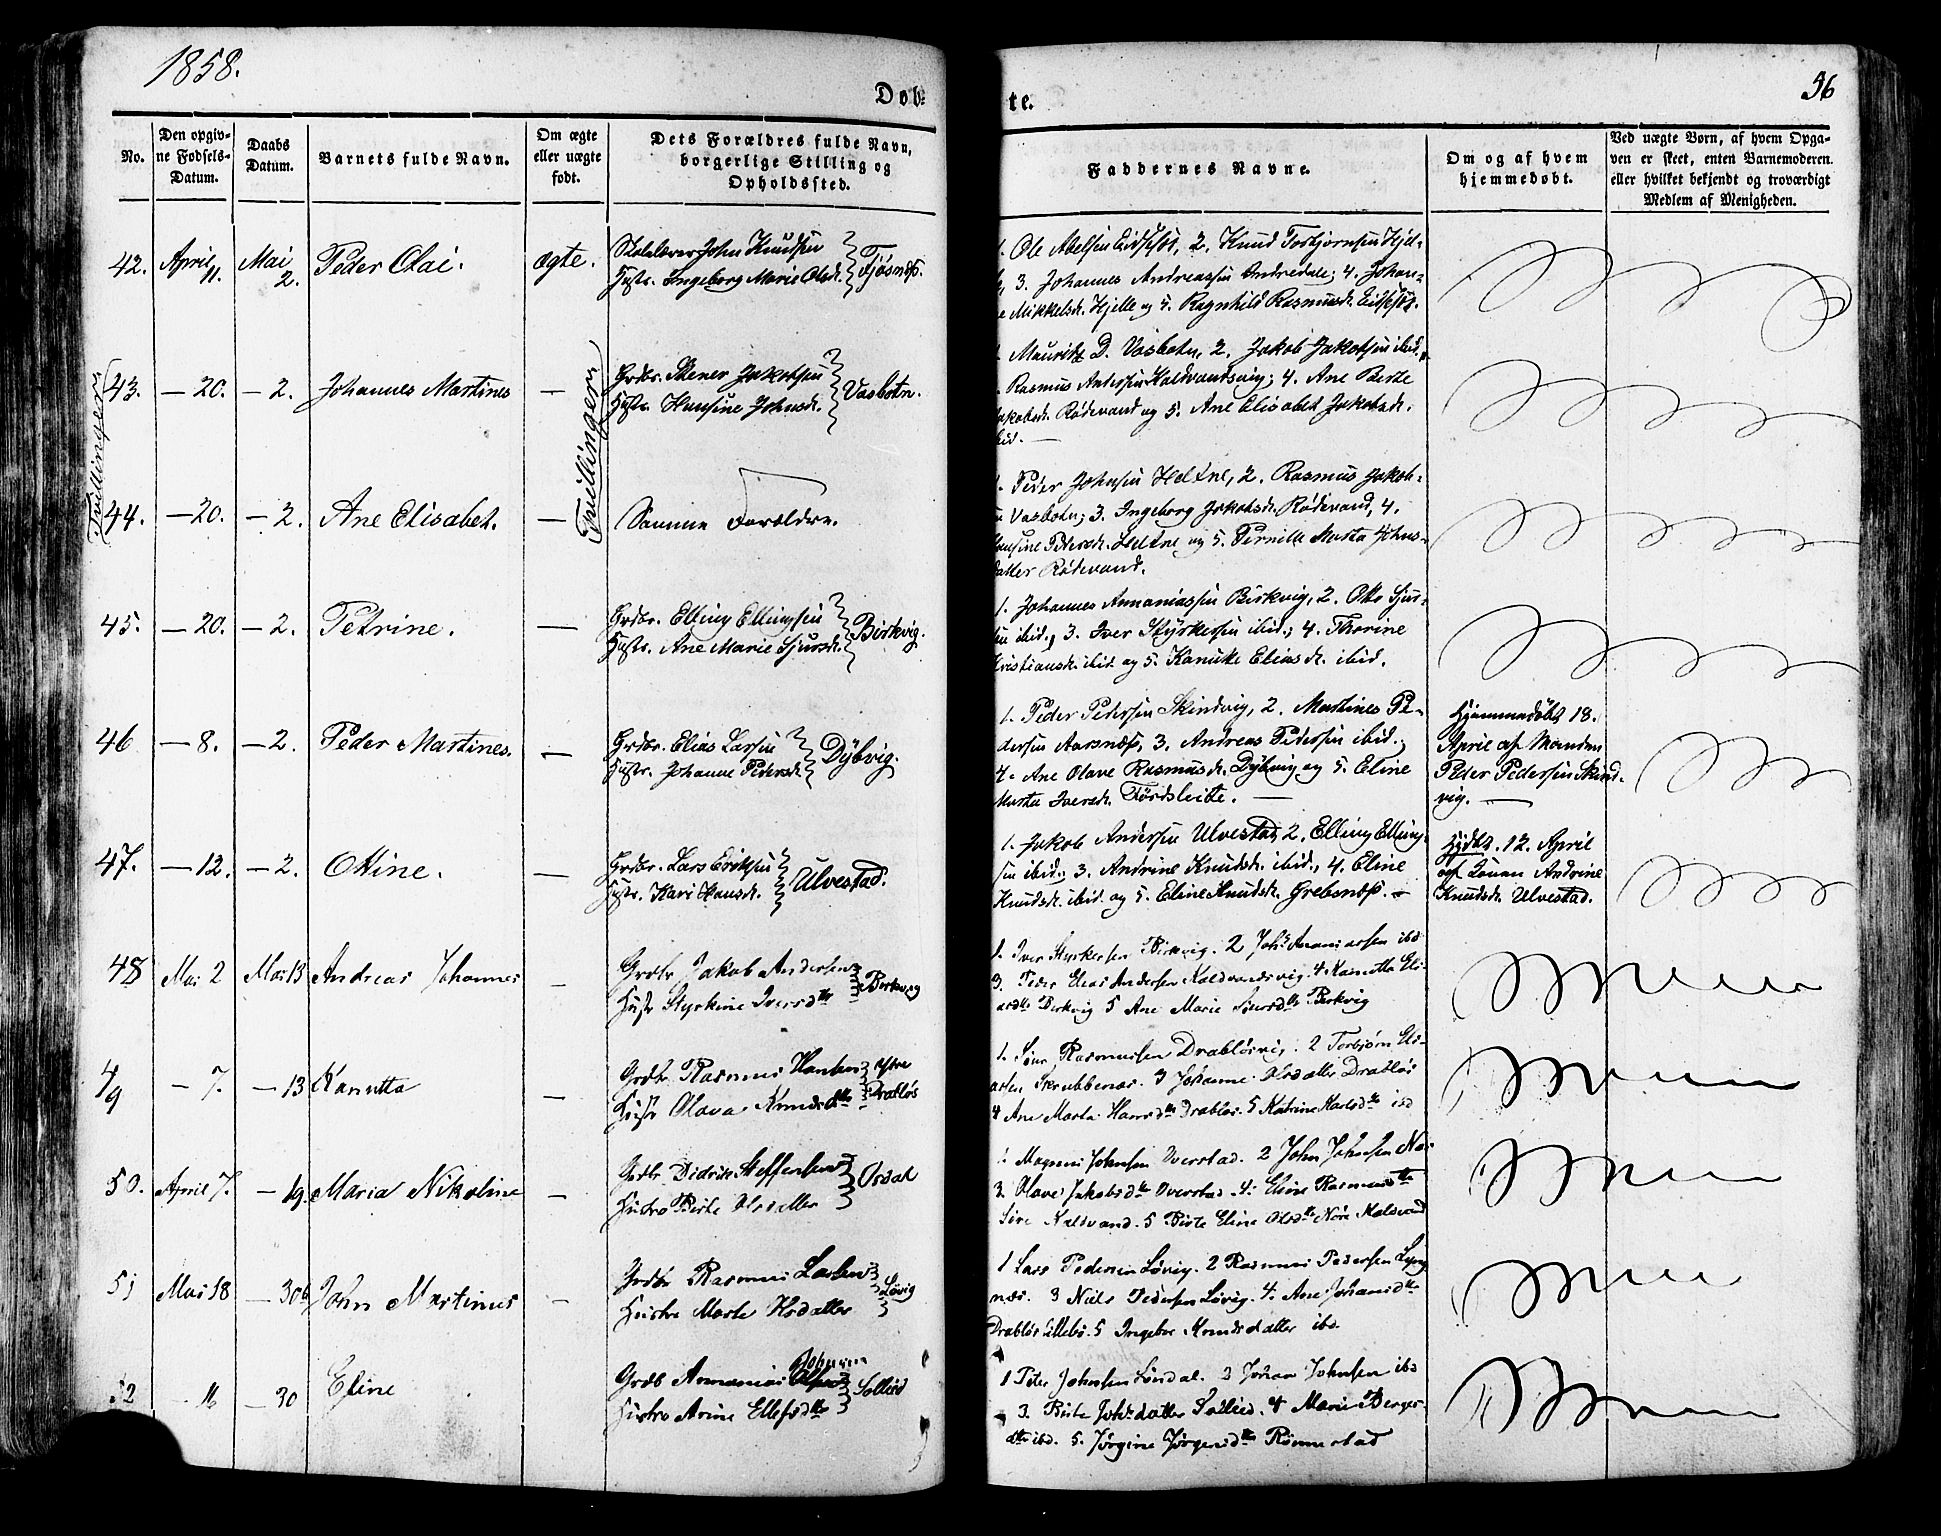 1858.
Døb-
te.
56
No.
Den opgiv-
ne Fødsels-
Datum.
Daabs
Datum.
Barnets fulde Navn.
Om ægte
eller uægte
født.
Dets Forældres fulde Navn,
borgerlige Stilling og
Opholdssted.
Faddernes Navne.
Om og af hvem
hjemmedøbt.
Ved uægte Børn, af hvem Opga-
ven er skeet, enten Barnemoderen.
eller hvilket bekjendt og troværdigt
Medlem af Menigheden.
42. April 11. Mai 2. Peder Olai. ægte.
Skolelærer John Knudsen
Hustr. Ingeborg Marie Olsd. Fjøsnæs.
1. Ole Abelsen Eidskjøs, 2. Knud Torbjørnsen Hjel-
3. Johannes Andreassen Andredale; 4. Johan-
e Mikkelsdr. Hjelle og 5. Ragnhild Rasmusdr. Eidskjøs.
Tvillinger
43. — 20. — 2. Johannes Martines —
Tvillinger
Grdbr. Stener Jakobsen
Hustr. Hansine Johnsdr. Vasbotn.
Mauritz D. Vasbotn, 2. Jakob Jakobsen ibid.
Rasmus Andersen Kaldvandsvig; 4. Ane Birte
Jakobsdr. Rødevand og 5. Ane Elisabet Jakobsdr.
ibid. —
44. — 20. — 2. Ane Elisabet. —
Samme Forældre.
Peder Johnsen Heltne, 2. Rasmus Jakob-
Vasbotn; 3. Ingeborg Jakobsdr. Rødevand, 4.
Hansine Pedersdr. Heltne og 5. Pernille Marta Johns-
datter Rødevand.
45. — 20. — 2. Petrine. —
Grdbr. Elling Ellingsen
Hustr. Ane Marie Sjursdr. Birkvig.
1. Johannes Annaniassen Birkvig, 2. Otto Sjur-
sen ibid., 3. Iver Styrkersen ibid.; 4. Thorine
Kristiansdr. ibid. og 5. Kanutte Eliasdr. ibid.
46 — 8. — 2. Peder Martines. —
Grdbr. Elias Larsen
Hustr. Johanne Pedersdr. Dybvig.
1. Peder Pedersen Skindvig, 2. Martines Pe-
dersen Aarsnæs, 3. Andreas Pedersen ibid.;
4. Ane Olave Rasmusdr. Dybvig og 5. Eline
Marta Iversdr. Fjørdsleite. —
Hjemmedøbt 18.
April af Manden
Peder Pedersen Skind-
vig. —
47. — 12. — 2. Oline. —
Grdbr. Lars Eriksen
Hustr. Kari Hansdr. Ulvestad.
1. Jakob Andersen Ulvestad, 2. Elling Elling-
sen ibid., 3. Andrine Knudsdr. ibid., 4. Eline
Knudsdr. ibid. og 5. Eline Knudsdr. Grebsnæs. —
Hjdbt. 12. April
af Andrine
Knudsdr. Ulvestad.
48 Mai 2 Mai 13 Andreas Johannes —
Grdbr Jakob Andersen
Hustr Styrkine Iversdtr Birkvig
1. Iver Styrkersen Birkvig. 2 Johs Ananiassen ibd
3. Peder Elias Andersen Kaldvandsvig. 4 Kanutta Eli-
asdtr Birkvig 5 Ane Marie Siversdtr Birkvig
49 — 7. — 13 Kanutta —
Grdbr Rasmus Hansen
Hustr Olava Knudsdtr Drabløs
1. Rasmussen Drabløsvig. 2 Torbjørn Eli-
asen Skrubbenæs. 3 Johanne Olsdatter Drabløs
4 Ane Marta Hansdtr Drabløs. 5 Katrine Karlsdtr ibd
50. April 7. — 19. Maria Nikoline —
Grdbr Didrik Steffensen
Hustro Birte Olsdatter Osdal
Magnus Johnsen Overstad. 2 John Johnsen
3. Olave Jakobsdtr Overstad. 4. Eline Rasmusdtr
Kaldvand. 5 Birte Eline Olsdtr
51 Mai 18 — 30 John Martinus —
Grdbr Rasmus Larsen
Hustro Marte Olsdatter Løvig
1 Lars Pedersen Løvig. 2 Rasmus Pedersen
næs. 3 Niels Pedersen Løvig. 4. Ane Johansdtr
Drabløs 5 Ingebor Knudsdatter ibd.
52 — 16 — 30 Eline
Grdb Annanias Johnsen
Hustro Anine Ellefsdtr Sollied
1 Peter Johnsen 2 Johan Johnsen ibd
3. Birte Johsdatter Sollied. 4 Marie Berger-
dtr ibd. 5. Jørgine Jørgensdtr Rønnestad